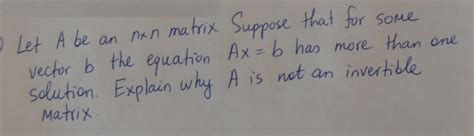 Let A be an n×n matrix Suppose that for some
vector b the equation Ax = b has more than one
solution. Explain why A is not an invertible
Matrix.